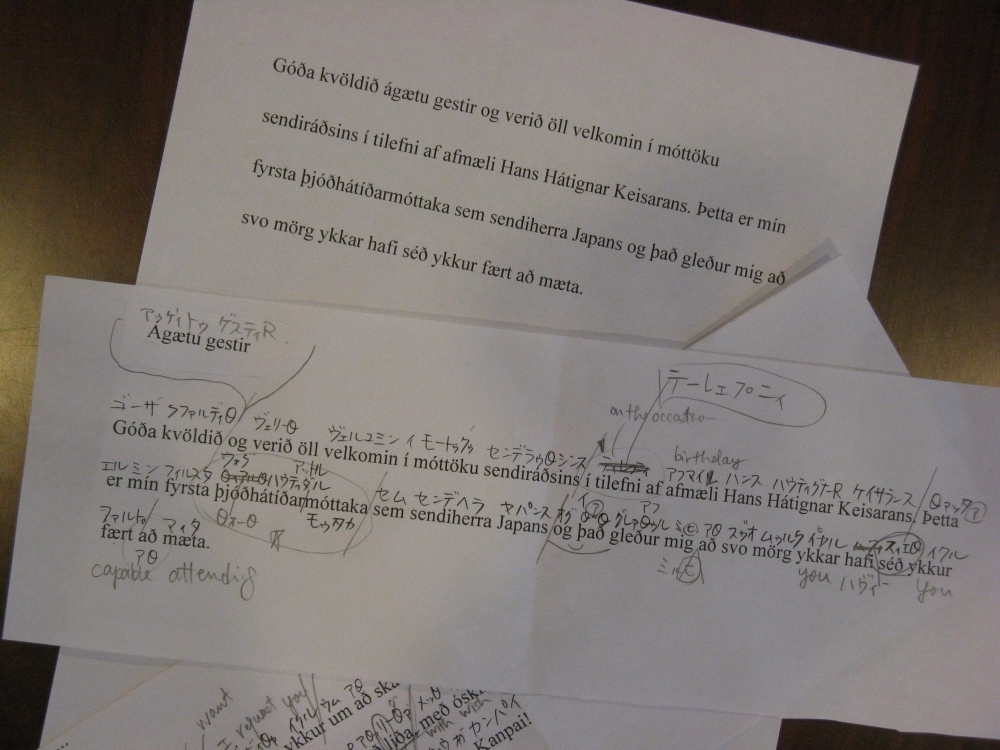 Góða kvöldið ágætu gestir og verið öll velkomin í móttöku
sendiráðsins í tilefni af afmæli Hans Hátignar Keisarans. Þetta er mín
fyrsta þjóðhátíðarmóttaka sem sendiherra Japans og það gleður mig að
svo mörg ykkar hafi séð ykkur fært að mæta.
アゥゲィトゥ ゲスティR
Ágætu gestir
テーレェフニィ
on the occasion
ゴーザ クファルディθ ヴェリーθ ヴェルコミン イ モートゥク センデラゥθシンス
Góða kvöldið og verið öll velkomin í móttöku sendiráðsins í tilefni af afmæli Hans Hátignar Keisarans. Þetta
birthday
アフマイル ハンス ハウティグナーR ケイサランス
エルミン フィルスタ ハウティダル セム センデヘラ ヤパンス
er mín fyrsta þjóðhátíðarmóttaka sem sendiherra Japans og það gleður mig að svo mörg ykkar hafi séð ykkur
モゥタカ
ミルヒ
you ハヴィー you
マイタ
fært að mæta.
アθ
capable attending
want
I request you
ykkur um að ska
liða með ósk
with wish
カンパイ
Kanpai!